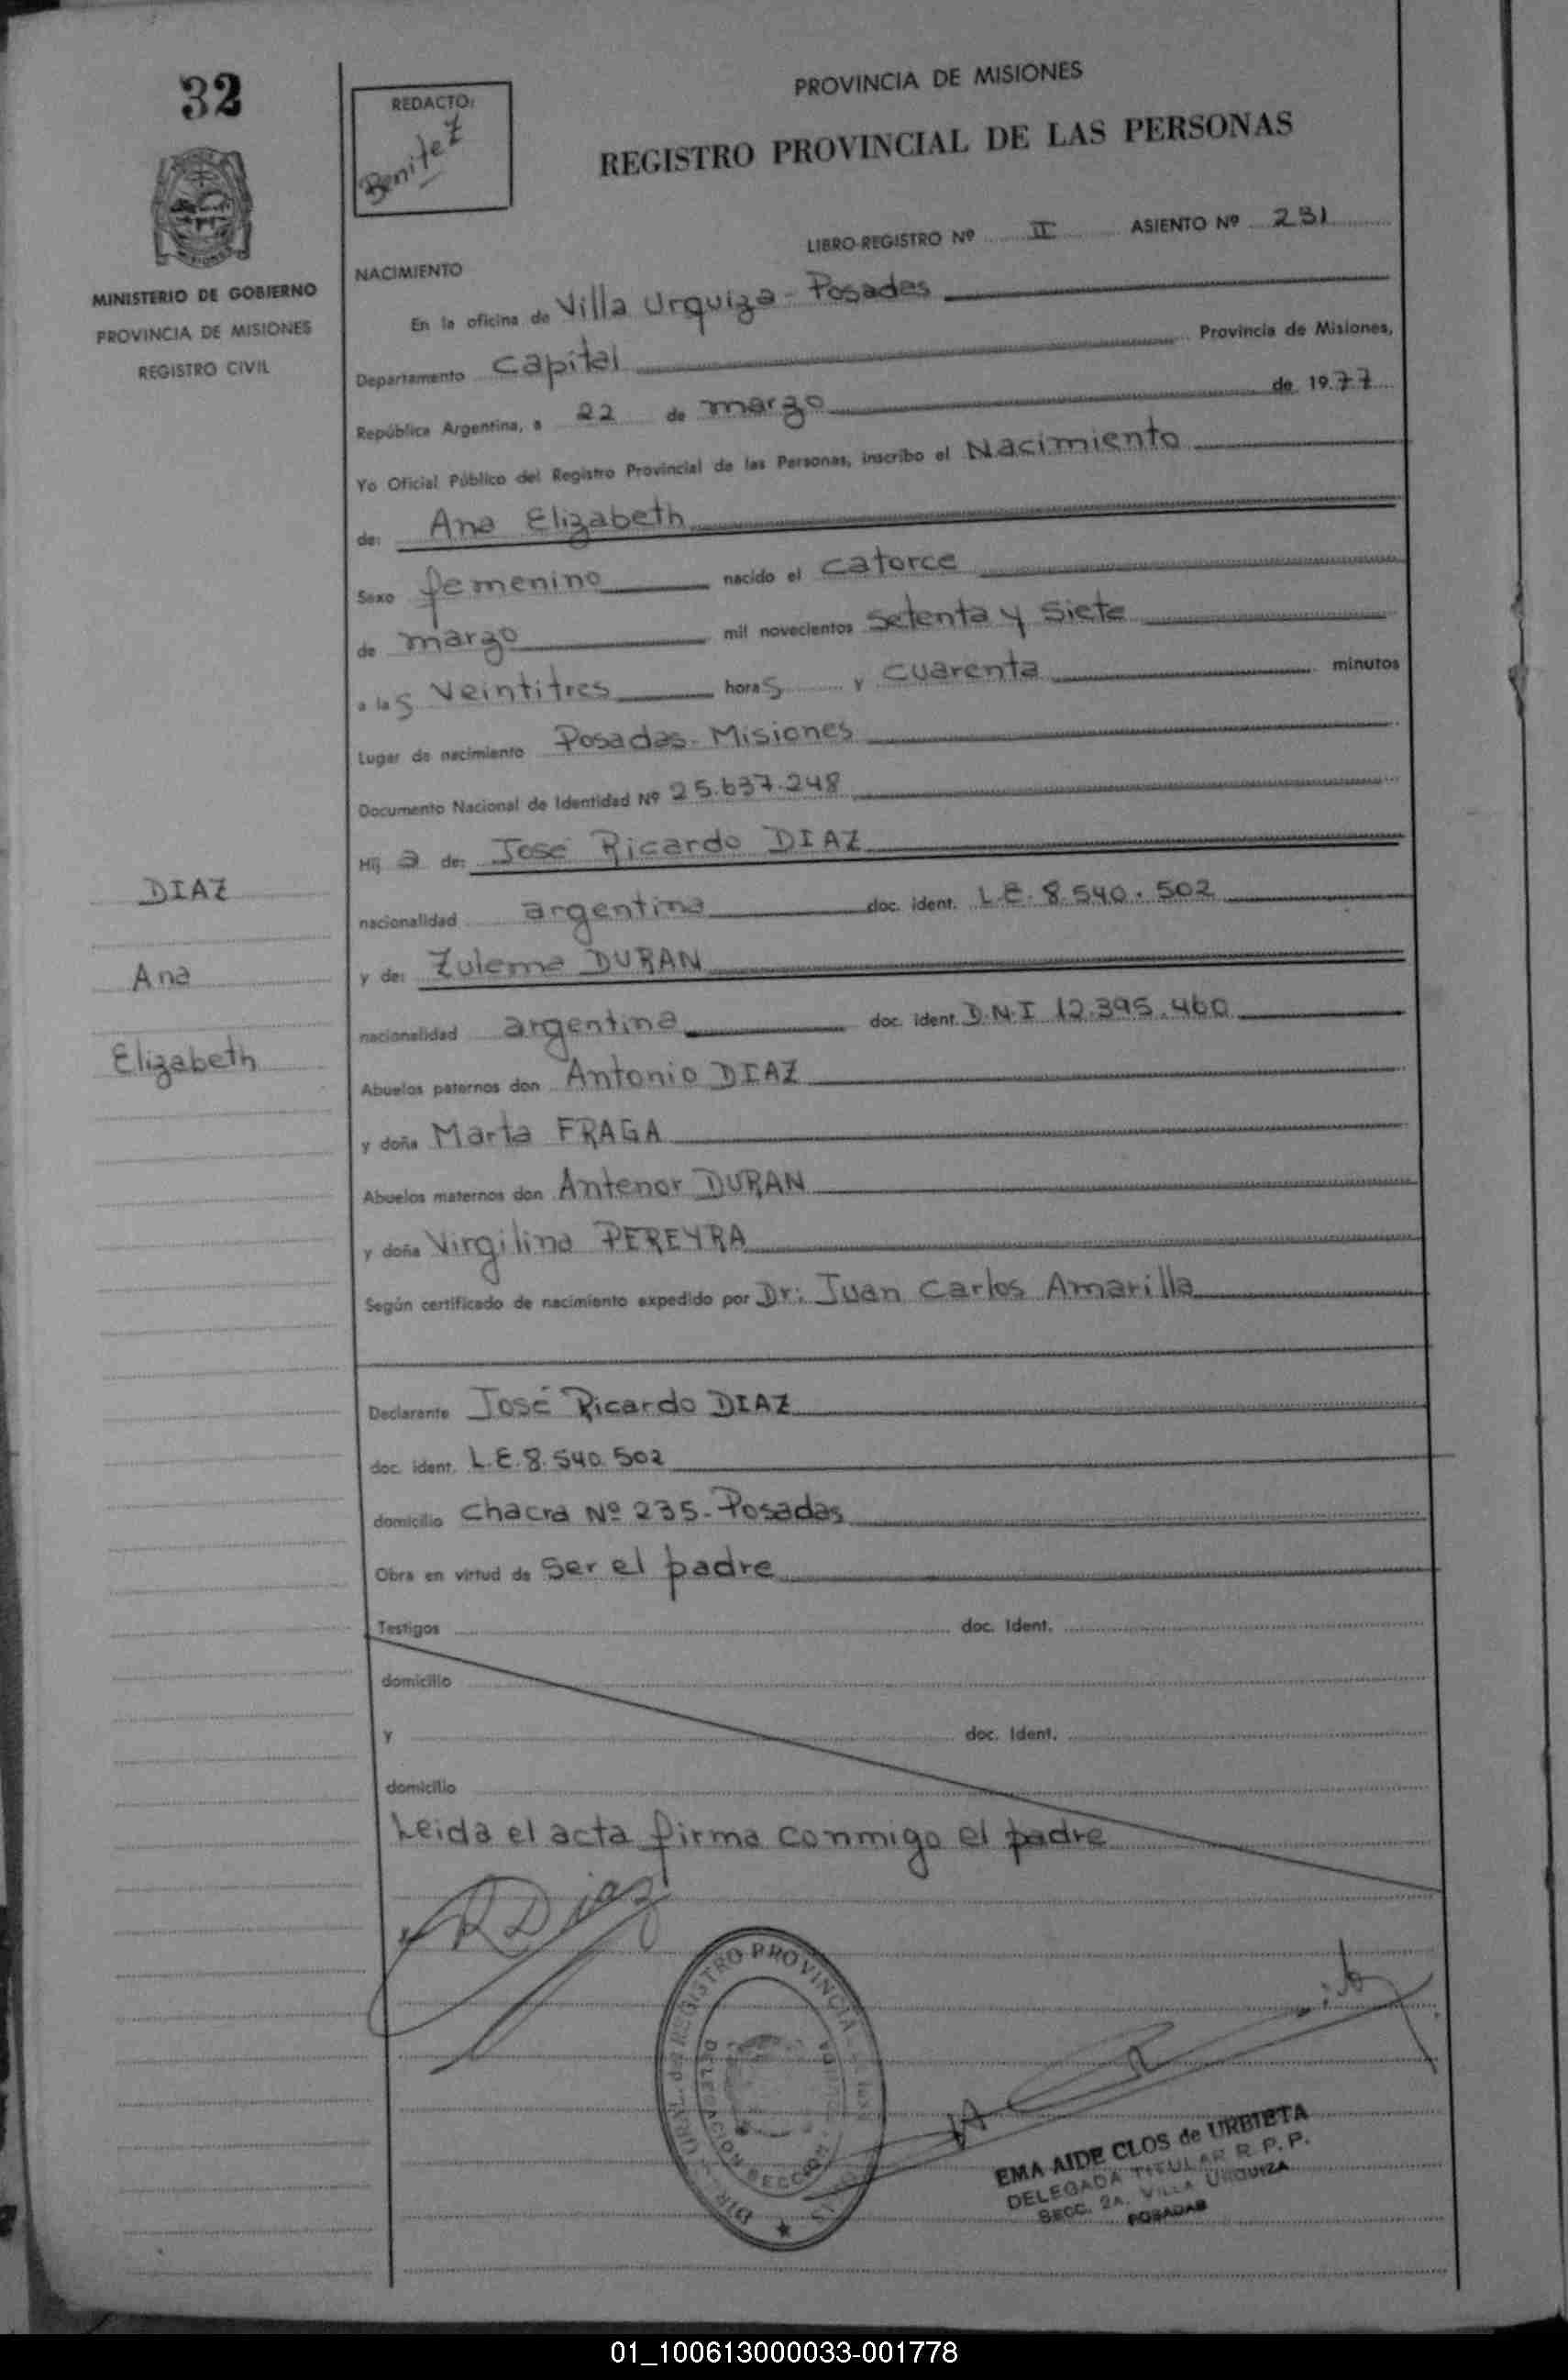 32
REDACTO:
Benitez
PROVINCIA DE MISIONES
REGISTRO PROVINCIAL DE LAS PERSONAS
MINISTERIO DE GOBIERNO
PROVINCIA DE MISIONES
REGISTRO CIVIL
LIBRO-REGISTRO Nº II ASIENTO Nº 231
NACIMIENTO
En la oficina de Villa Urquiza - Posadas
Departamento Capital Provincia de Misiones,
República Argentina, a 22 de marzo de 1977
Yo Oficial Público del Registro Provincial de las Personas, inscribo el Nacimiento
de: Ana Elizabeth
Sexo femenino nacido el catorce
de marzo mil novecientos setenta y siete
a las veintitres horas y cuarenta minutos
Lugar de nacimiento Posadas - Misiones
Documento Nacional de Identidad Nº 25.637.248
Hij a de: José Ricardo DIAZ
nacionalidad argentina doc. ident. L.E. 8.540.502
y de: Zulema DURAN
nacionalidad argentina doc. ident. D.N.I 12.395.460
Abuelos paternos don Antonio DIAZ
y doña Marta FRAGA
Abuelos maternos don Antenor DURAN
y doña Virgilina PEREYRA
Según certificado de nacimiento expedido por Dr: Juan Carlos Amarilla
DIAZ
Ana
Elizabeth
Declarante José Ricardo DIAZ
doc. ident. L.E. 8.540.502
domicilio Chacra Nº 235 - Posadas
Obra en virtud de ser el padre
Testigos doc. Ident.
domicilio
y doc. Ident.
domicilio
Leida el acta firma conmigo el padre
RDiaz
REGISTRO PROVINCIA
DELEGACION SECCION
EMA AIDE CLOS de URBIETA
DELEGADA TITULAR R. P. P.
SECC. 2A. VILLA URQUIZA
POSADAS
01_100613000033-001778